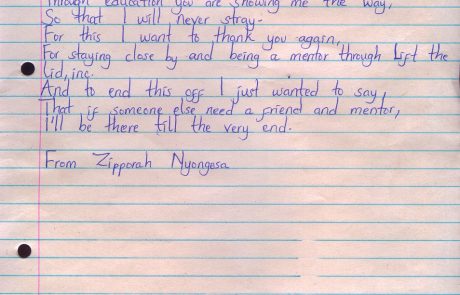 Through education you are showing me the way,
So that I will never stray.
For this I want to thank you again,
For staying close by and being a mentor through Lift the
Lid, inc.
And to end this off I just wanted to say,
That if someone else need a friend and mentor,
I'll be there till the very end.
From Zipporah Nyongesa